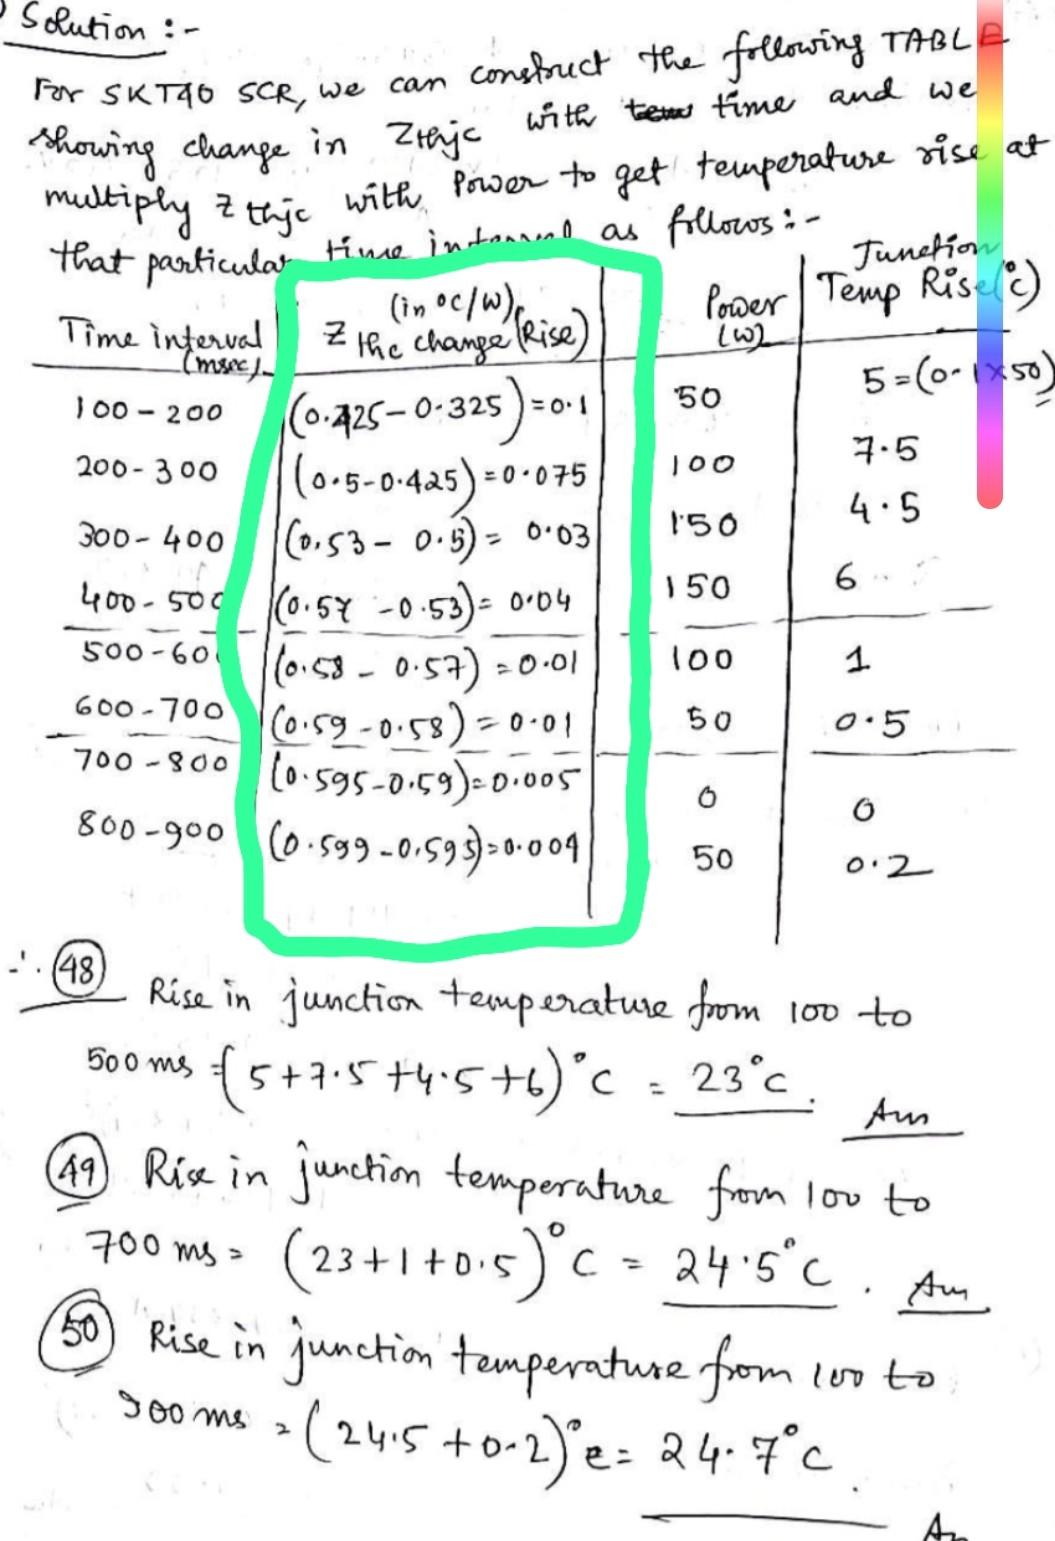 Solution :-
For SKT40 SCR, we can construct the following TABLE
showing change in Zthjc with time and we
multiply Zthjc with Power to get temperature rise at
that particular time interval as follows :-
Time interval (msec) (in °C/W) Z thc change (Rise) Power (W) Junction Temp Rise (°C)
100 - 200 (0.425 - 0.325) = 0.1 50 5 = (0.1 x 50)
200 - 300 (0.5 - 0.425) = 0.075 100 7.5
300 - 400 (0.53 - 0.5) = 0.03 150 4.5
400 - 500 (0.57 - 0.53) = 0.04 150 6
500 - 60 (0.58 - 0.57) = 0.01 100 1
600 - 700 (0.59 - 0.58) = 0.01 50 0.5
700 - 800 (0.595 - 0.59) = 0.005 0 0
800 - 900 (0.599 - 0.595) = 0.004 50 0.2
∴ 48 Rise in junction temperature from 100 to
500 ms = (5 + 7.5 + 4.5 + 6) °C = 23°C. Ans
49 Rise in junction temperature from 100 to
700 ms = (23 + 1 + 0.5) °C = 24.5°C. Ans
50 Rise in junction temperature from 100 to
900 ms = (24.5 + 0.2) °C = 24.7°C